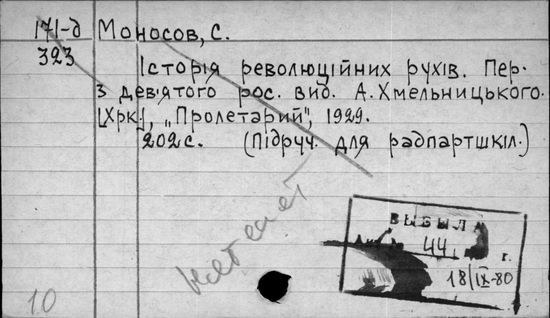 171-д Моносов, С.
323
Історія революційних рухів. Пер.
з дев'ятого рос. вид. А. Хмельницького.
[Хрк.], „Пролетарий", 1929.
202 с. (Підруч. для радпартшкіл.)
ВЫБЫЛА
44 г.
18/IX-80
10